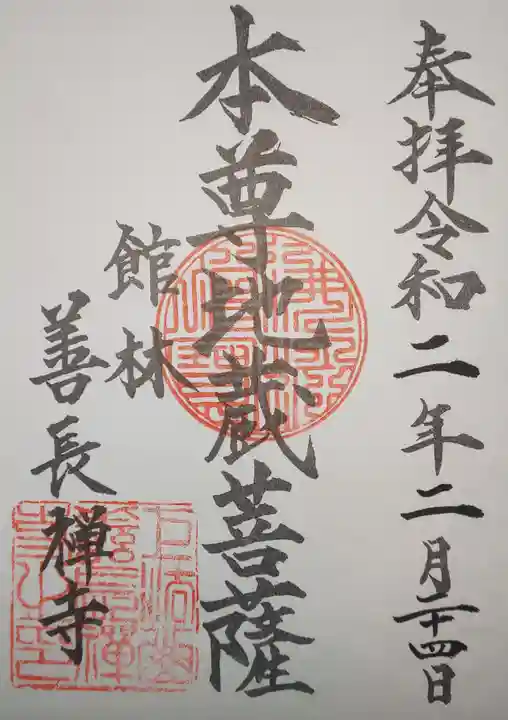 奉拝令和二年二月二十四日
本尊地蔵菩薩
館林
善長禅寺